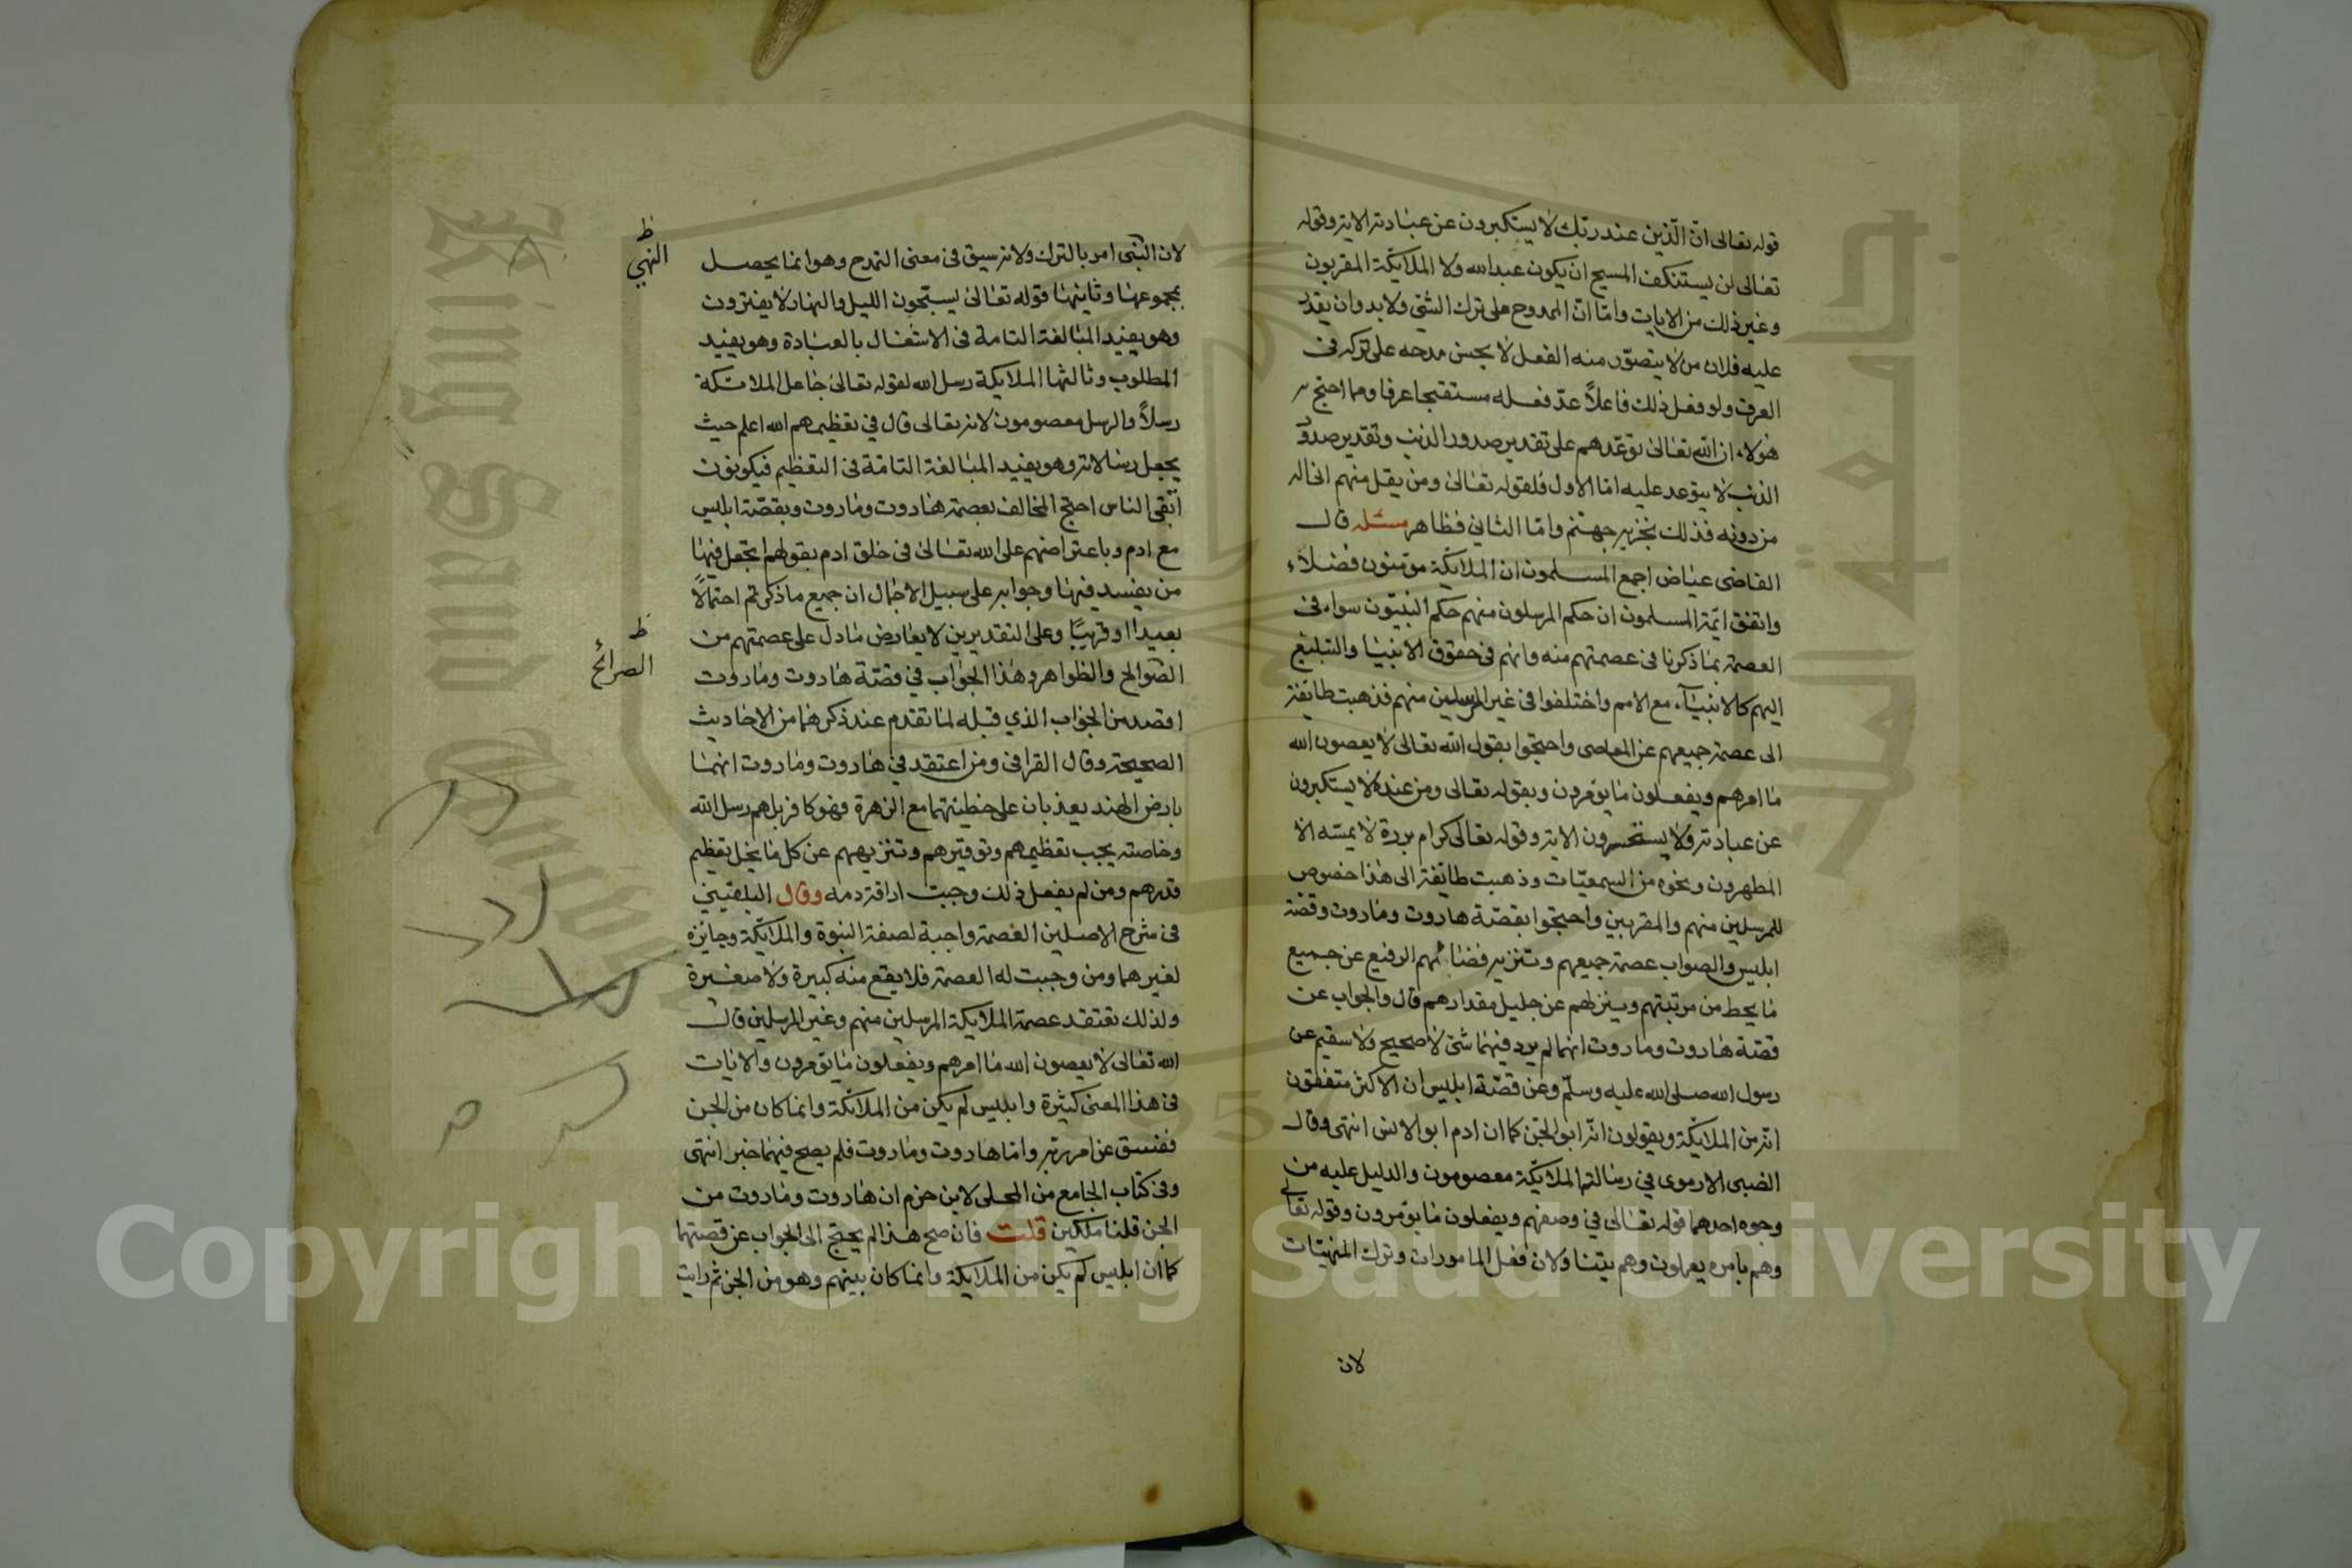 قوله تعالى ان الذين عند ربك لا يستكبرون عن عبادته الاية وقوله
تعالى لن يستنكف المسيح ان يكون عبدا لله ولا الملايكة المقربون
وغير ذلك من الايات واما ان الممدوح على ترك الشئ ولا بد وان يقدر
عليه فلان من لا يتصور منه الفعل لا يحسن مدحه على تركه في
العرف ولو فعل ذلك فاعلاً عدّ فعله مستقبحا عرفا ومما احتج به
هولاء ان الله تعالى توعدهم على تقدير صدور الذنب وتقدير صدور
الذنب لا يتوعد عليه اما الاول فلقوله تعالى ومن يقل منهم اني اله
من دونه فذلك نجزيه جهنم واما الثاني فظاهر مسئلة قال
القاضى عياض اجمع المسلمون ان الملايكة مؤمنون فضلاء
واتفق ايمة المسلمون ان حكم المرسلون منهم حكم النبيون سواء في
العصمة بما ذكرنا في عصمتهم منه وانهم في حقوق الانبيا والتبليغ
اليهم كالانبيآء مع الامم واختلفوا في غير المرسلين منهم فذهبت طايفة
الى عصمة جميعهم عن المعاصى واحتجوا بقول الله تعالى لا يعصون الله
ما امرهم ويفعلون ما يؤمرون وبقوله تعالى ومن عنده لا يستكبرون
عن عبادته ولا يستحسرون الاية وقوله تعالى كرام بررة لا يمسه الا
المطهرون ونحوه من السمعيات وذهبت طايفة الى هذا خصوص
للمرسلين منهم والمقربين واحتجوا بقصة هاروت وماروت وقصة
ابليس والصواب عصمة جميعهم وتنزيه الرفيع عن جميع
ما يحط من مرتبتهم وينزلهم عن جليل مقدارهم قال والجواب عن
قصة هاروت وماروت انهما لم يرد فيهما شئ لا صحيح ولا سقيم عن
رسول الله صلى الله عليه وسلم وعن قصة ابليس ان الاكثر متفقون
انه من الملايكة ويقولون انه ابو الجن كما ان ادم ابو الانس انتهى وقال
الارموى في رسالته الملايكة معصومون والدليل عليه من
وجوه احدهما قوله تعالى في وصفهم ويفعلون ما يؤمرون وقوله تعالى
وهم بامره يعملون وهم يتناولان فعل المامورات وترك المنهيات
لان
لان النهى امر بالترك ولانه سيق في معنى التمدح وهو انما يحصل
ظ
النهي
بمجموعهما وثانيهما قوله تعالى يسبحون الليل والنهار لا يفترون
وهو يفيد المبالغة التامة في الاشتغال بالعبادة وهو يفيد
المطلوب وثالثها الملايكة رسل الله لقوله تعالى جاعل الملائكة
رسلاً والرسل معصومون لانه تعالى قال في تعظيمهم الله اعلم حيث
يجعل رسالاته وهو يفيد المبالغة التامة في التعظيم فيكونون
اتقى الناس احتج المخالف بعصمة هاروت وماروت وبقصة ابليس
مع ادم وباعتراضهم على الله تعالى في خلق ادم بقولهم اتجعل فيها
من يفسد فيها وجوابه على سبيل الاجمال ان جميع ما ذكرتم احتمالاً
بعيدا او قريبًا وعلى التقديرين لا يعارض ما دل على عصمتهم من
ظ
الصرائح
الصوالح والظواهر وهذا الجواب في قصة هاروت وماروت
اقصد من الجواب الذي قبله لما تقدم عند ذكرهما من الاحاديث
الصحيحة وقال القرافى ومن اعتقد في هاروت وماروت انهما
بارض الهند يعذبان على خطيئتهما مع الزهرة فهو كافر بل هم رسل الله
وخاصته يجب تعظيمهم وتوقيرهم وتنزيههم عن كل ما يخل بتعظيم
قدرهم ومن لم يفعل ذلك وجبت اراقة دمه وقال البلقيني
في شرح الاصلين العصمة واجبة لصفة النبوة والملايكة وجايزة
لغيرهما ومن وجبت له العصمة فلا يقع منه كبيرة ولا صغيرة
ولذلك نعتقد عصمة الملايكة المرسلين منهم وغير المرسلين قال
الله تعالى لا يعصون الله ما امرهم ويفعلون ما يؤمرون والايات
في هذا المعنى كثيرة وابليس لم يكن من الملايكة وانما كان من الجن
ففسق عن امر ربه واما هاروت وماروت فلم يصح فيهما خبر انتهى
وفى كتاب الجامع من المحلى لابن حزم ان هاروت وماروت من
الجن قلنا ملكين قلت فان صح هذا لم يحتج الى الجواب عن قصتهما
كما ان ابليس لم يكن من الملايكة وانما كان بينهم وهو من الجن ثم رايت
جامعة الملك سعود
King Saud University
1957
Copyright © King Saud University